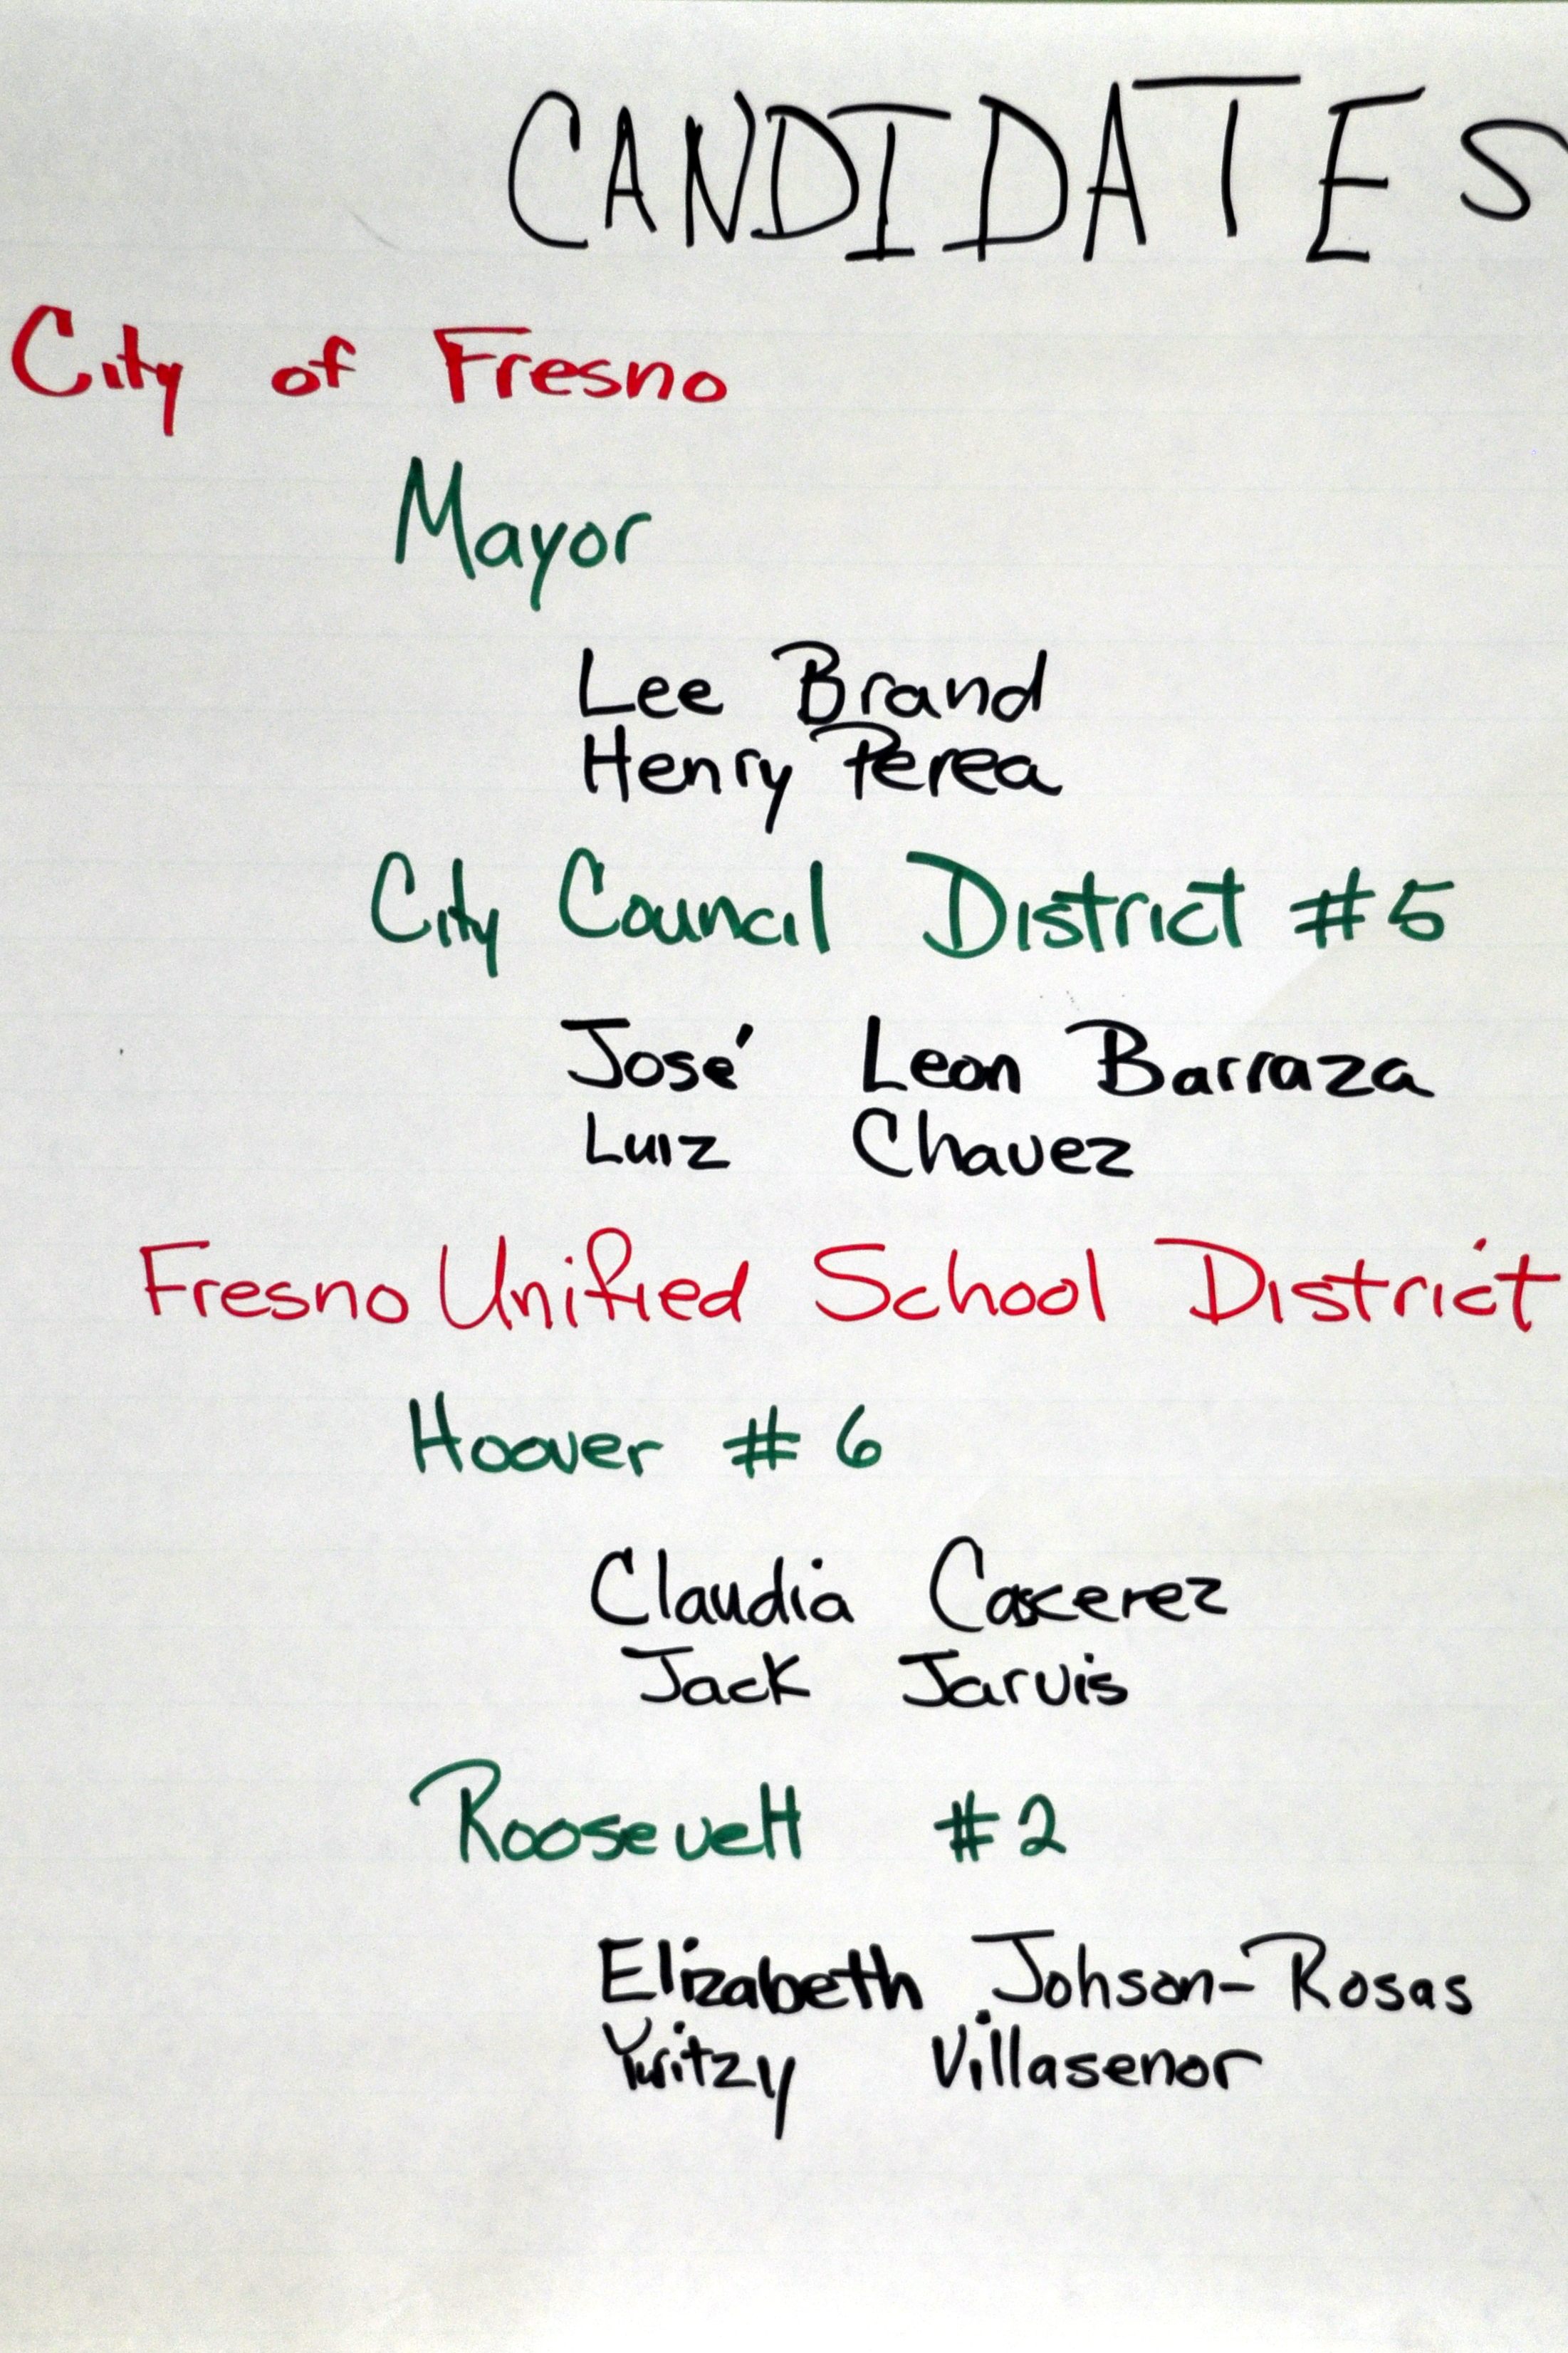 CANDIDATES
City of Fresno
Mayor
Lee Brand
Henry Perea
City Council District #5
José Leon Barraza
Luiz Chavez
Fresno Unified School District
Hoover #6
Claudia
Jack Jarvis
Roosevelt #2
Elizabeth Johson-Rosas
Yuritzy Villasenor